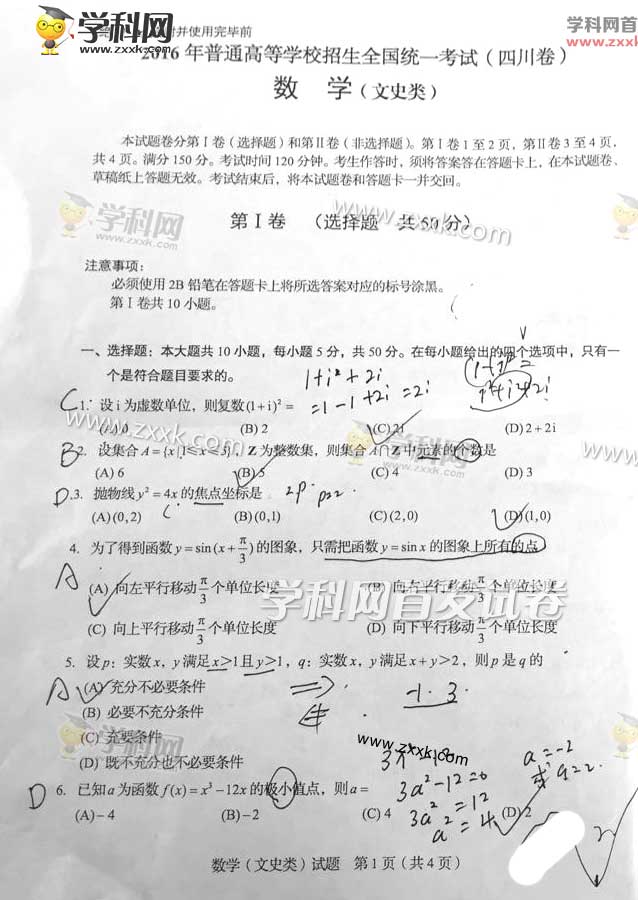 学科网
www.zxxk.com
学科网首发试
www.zxxk.c
并使用完毕前
2016年普通高等学校招生全国统一考试(四川卷)
数 学(文史类)
本试题卷分第Ⅰ卷(选择题)和第Ⅱ卷(非选择题)。第Ⅰ卷1至2页,第Ⅱ卷3至4页,
共4页。满分150分。考试时间120分钟。考生作答时,须将答案答在答题卡上,在本试题卷、
草稿纸上答题无效。考试结束后,将本试题卷和答题卡一并交回。
学科网
www.zxxk.com
学科网
www.zxxk.com
第Ⅰ卷 (选择题 共50分)
注意事项:
必须使用2B铅笔在答题卡上将所选答案对应的标号涂黑。
第Ⅰ卷共10小题。
一、选择题:本大题共10小题,每小题5分,共50分。在每小题给出的四个选项中,只有一
个是符合题目要求的。
1+i²+2i
C 1. 设i为虚数单位,则复数(1+i)²= =1-1+2i=2i
(A) 0 (B) 2 (C) 2i (D) 2+2i
B 2. 设集合A={x|1≤x≤5},Z为整数集,则集合A∩Z中元素的个数是
(A) 6 (B) 5 (C) 4 (D) 3
学科网
www.zxxk.com
学科网
www.zxxk.com
D 3. 抛物线y²=4x的焦点坐标是 2p p=2
(A) (0,2) (B) (0,1) (C) (2,0) (D) (1,0)
4. 为了得到函数y=sin(x+π/3)的图象,只需把函数y=sin x的图象上所有的点
A
(A) 向左平行移动π/3个单位长度 (B) 向右平行移动π/3个单位长度
(C) 向上平行移动π/3个单位长度 (D) 向下平行移动π/3个单位长度
学科网首发试卷
5. 设p:实数x,y满足x>1且y>1,q:实数x,y满足x+y>2,则p是q的
A (A) 充分不必要条件 ⇒ -1. 3
(B) 必要不充分条件
(C) 充要条件
(D) 既不充分也不必要条件
学科网
www.zxxk.com
学科网
www.zxxk.com
D 6. 已知a为函数f(x)=x³-12x的极小值点,则a=
(A) -4 (B) -2 (C) 4 (D) 2
3a²-12=0
3a²=12
a²=4
a=-2
或a=2
数学(文史类)试题 第1页(共4页)